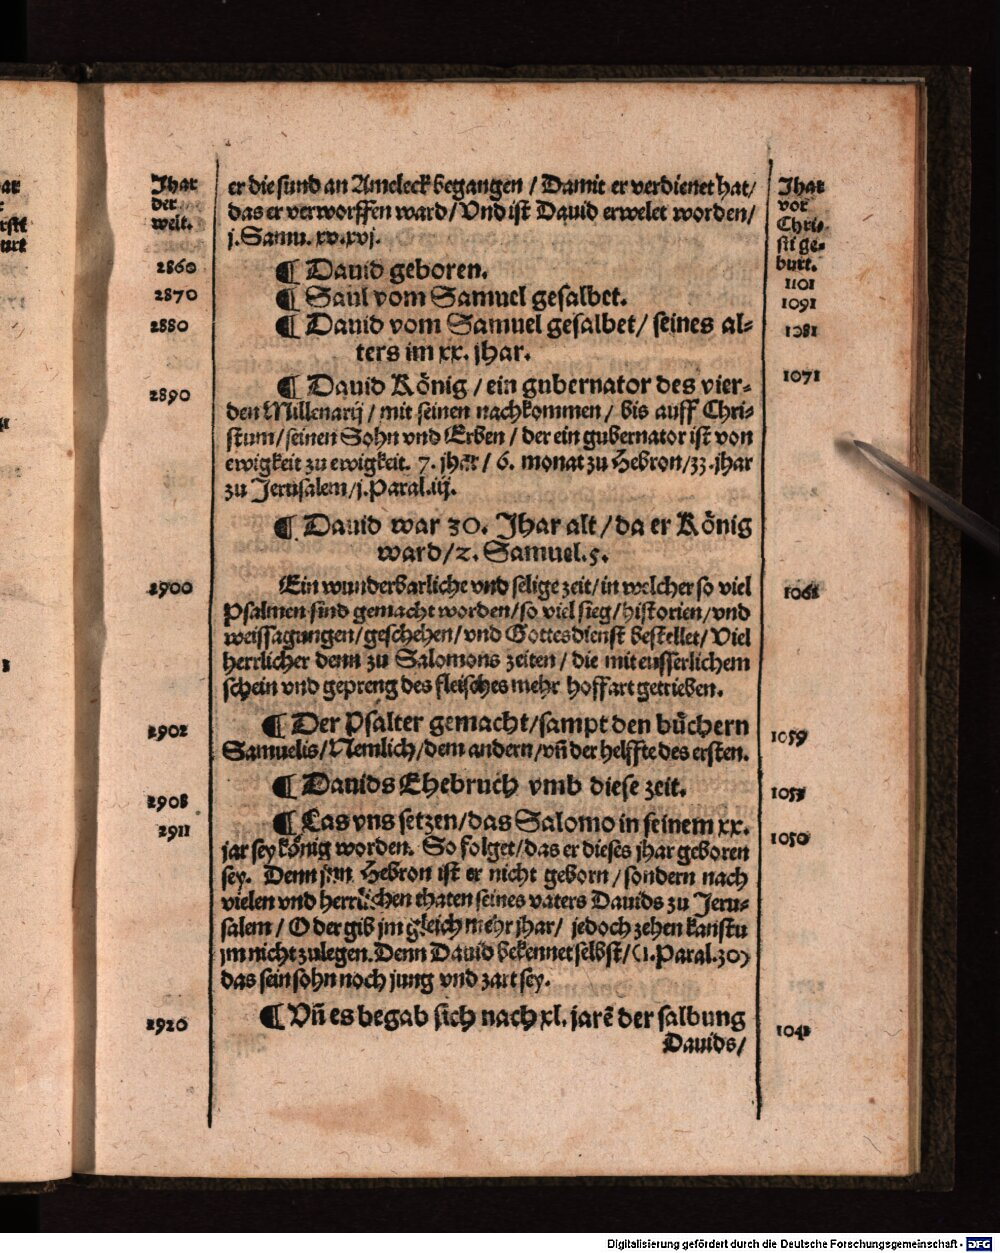 Jhar
der
welt.
er die sund an Ameleck begangen / Damit er verdienet hat/
das er verworffen ward/Vnd ist Dauid erwelet worden/
j. Samu. xv. xvj.
Jhar
vor
Chri-
sti ge-
burt.
2860 ¶ Dauid geboren. 1101
2870 ¶ Saul vom Samuel gesalbet. 1091
2880 ¶ Dauid vom Samuel gesalbet/ seines al- 1081
ters im xx. jhar.
2890 ¶ Dauid König / ein gubernator des vier- 1071
den Millenarij / mit seinen nachkommen / bis auff Chri-
stum/seinen Sohn vnd Erben / der ein gubernator ist von
ewigkeit zu ewigkeit. 7. jhar / 6. monat zu Hebron/33.jhar
zu Jerusalem/j.Paral.iij.
¶ Dauid war 30. Jhar alt/da er König
ward/2. Samuel.5.
2900 Ein wunderbarliche vnd selige zeit/in welcher so viel 1061
Psalmen sind gemacht worden/so viel sieg/historien/vnd
weissagungen/geschehen/vnd Gottesdienst bestellet/Viel
herrlicher denn zu Salomons zeiten / die mit eusserlichem
schein vnd gepreng des fleisches mehr hoffart getrieben.
2902 ¶ Der Psalter gemacht/sampt den büchern 1059
Samuelis/Nemlich/dem andern/vñ der helffte des ersten.
2908 ¶ Dauids Ehebruch vmb diese zeit. 1053
2911 ¶ Las vns setzen/das Salomo in seinem xx. 1050
jar sey könig worden. So folget/das er dieses jhar geboren
sey. Denn jnn Hebron ist er nicht geborn/sondern nach
vielen vnd herrlichen thaten seines vaters Dauids zu Jeru-
salem / Oder gib jm gleich mehr jhar/ jedoch zehen kanstu
jm nicht zulegen. Denn Dauid bekennet selbst/(1.Paral.30)
das sein sohn noch jung vnd zart sey.
2920 ¶ Vñ es begab sich nach xl. jarē der salbung 1041
Dauids/
Digitalisierung gefördert durch die Deutsche Forschungsgemeinschaft - DFG